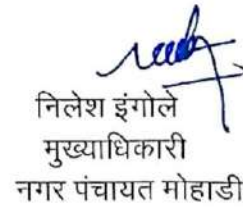 निलेश इंगोले
मुख्याधिकारी
नगर पंचायत मोहाडी